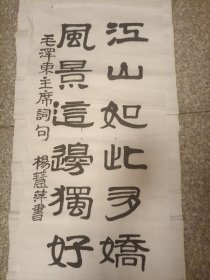 江山如此多嬌
風景這邊獨好
毛澤東主席詞句 楊慧萍書